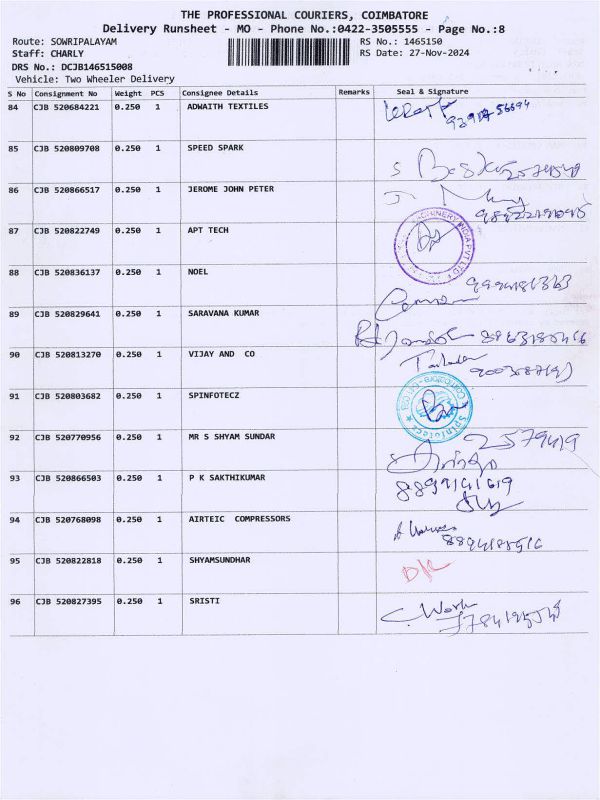 THE PROFESSIONAL COURIERS, COIMBATORE
Delivery Runsheet - MO - Phone No.:0422-3505555 - Page No.:8
Route: SOWRIPALAYAM RS No.: 1465150
Staff: CHARLY RS Date: 27-Nov-2024
DRS No.: DCJB146515008
Vehicle: Two Wheeler Delivery
S No Consignment No Weight PCS Consignee Details Remarks Seal & Signature
84 CJB 520684221 0.250 1 ADWAITH TEXTILES
85 CJB 520809708 0.250 1 SPEED SPARK
86 CJB 520866517 0.250 1 JEROME JOHN PETER
87 CJB 520822749 0.250 1 APT TECH
88 CJB 520836137 0.250 1 NOEL
89 CJB 520829641 0.250 1 SARAVANA KUMAR
90 CJB 520813270 0.250 1 VIJAY AND CO
91 CJB 520803682 0.250 1 SPINFOTECZ
92 CJB 520770956 0.250 1 MR S SHYAM SUNDAR 2579419
93 CJB 520866503 0.250 1 P K SAKTHIKUMAR
94 CJB 520768098 0.250 1 AIRTEIC COMPRESSORS
95 CJB 520822818 0.250 1 SHYAMSUNDHAR
96 CJB 520827395 0.250 1 SRISTI